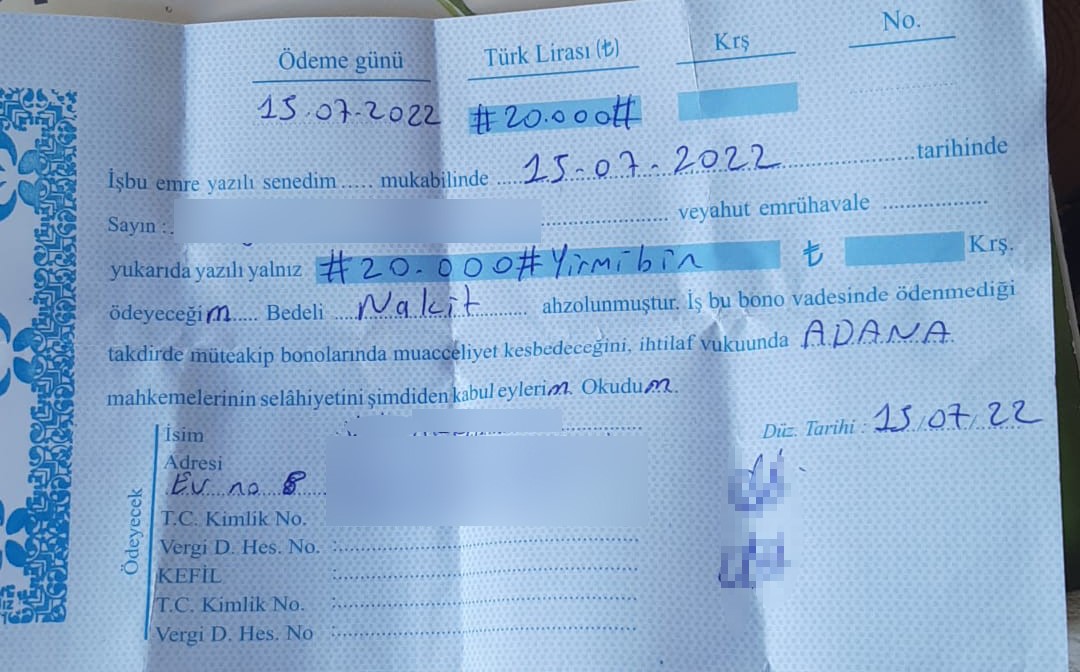 Ödeme günü Türk Lirası (₺) Krş No.
15.07.2022 #20.000#
İşbu emre yazılı senedim ..... mukabilinde .....15-07-2022..................tarihinde
Sayın :. ................... veyahut emrühavale ..................
yukarıda yazılı yalnız #20.000#Yirmibin ₺ Krş.
ödeyeceğim..... Bedeli ....Nakit........... ahzolunmuştur. İş bu bono vadesinde ödenmediği
takdirde müteakip bonolarında muacceliyet kesbedeceğini, ihtilaf vukuunda ADANA.
mahkemelerinin selâhiyetini şimdiden kabul eylerim. Okudum.
Düz. Tarihi : 15/07/22
Ödeyecek
İsim
Adresi
Ev no 8
T.C. Kimlik No.
Vergi D. Hes. No. :
KEFİL :
T.C. Kimlik No. :
Vergi D. Hes. No :